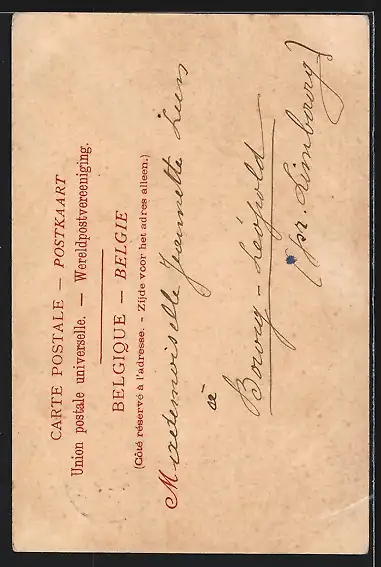 CARTE POSTALE — POSTKAART
Union postale universelle. — Wereldpostvereeniging.
BELGIQUE — BELGIE
(Côté réservé à l'adresse. - Zijde voor het adres alleen.)
Mademoiselle Jeannette
à
Bourg-Léopold
(pr. Limbourg)